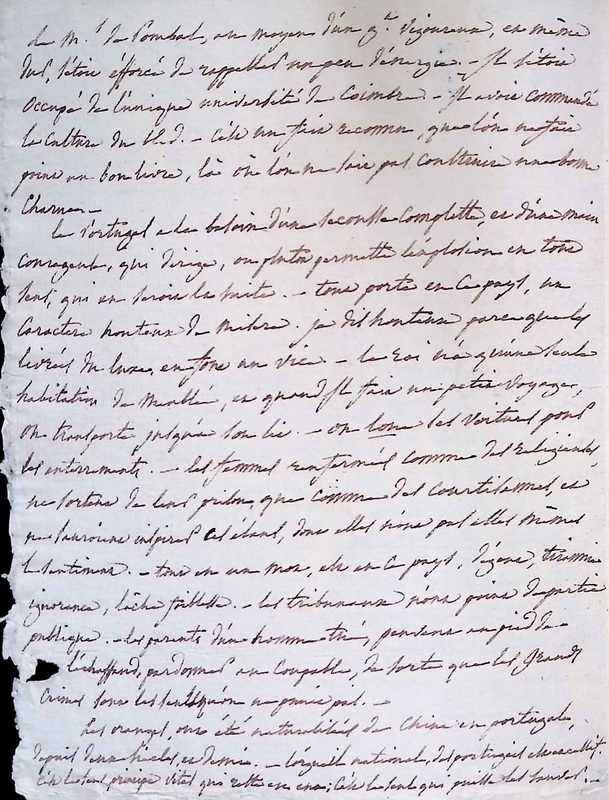 de M.r de Pombal, au moyen d'un g.al vigoureux, en même
Sus, s'étoit éfforcé de rappeller un peu d'énergie. – Il s'étoit
occupé de l'unique université de Coimbre – Il avoit commandé
la culture du bled. – C'est un fait reconnu, que l'on ne fait
point un bon livre, là où l'on ne sait pas construire une bonne
Charrue –
le Portugal a la besoin d'une secousse complette, et d'une main
courageuse, qui dirige, ou plutot permette l'explosion en tous
sens, qui en seroit la suite. – tout porte en ce pays, un
caractere honteux de misere. je dis honteux parce que les
livrées du luxe, en font un vice – le roi n'a qu'une seule
habitation de Meublée, et quand il fait un petit voyage,
on transporte jusqu'à son lit. – on loue les voitures pour
les enterrements. – les femmes renfermées comme des religieuses,
ne sortent de leurs prison, que comme des courtisennes, et
ne sauroient inspirer ces élans, dont elles n'ont pas elles mêmes
le sentiment. – tout en un mot, est en ce pays, dégout, tirannie
ignorance, lâche foiblesse. – les tribunaux n'ont point de partie
publique. – les parents d'un homme tué, peuvent au pied de
l'échaffaud, pardonner au coupable, de sorte que les grands
crimes sont les seuls qu'on ne punit pas. –
Les oranges, ont été naturalisées de Chine en portugal,
depuis deux siecles, et demie. – l'orgueil national, des portugais est excessif.
C'est le seul principe vital qui reste en eux; c'est le seul qui puisse les sauver. –